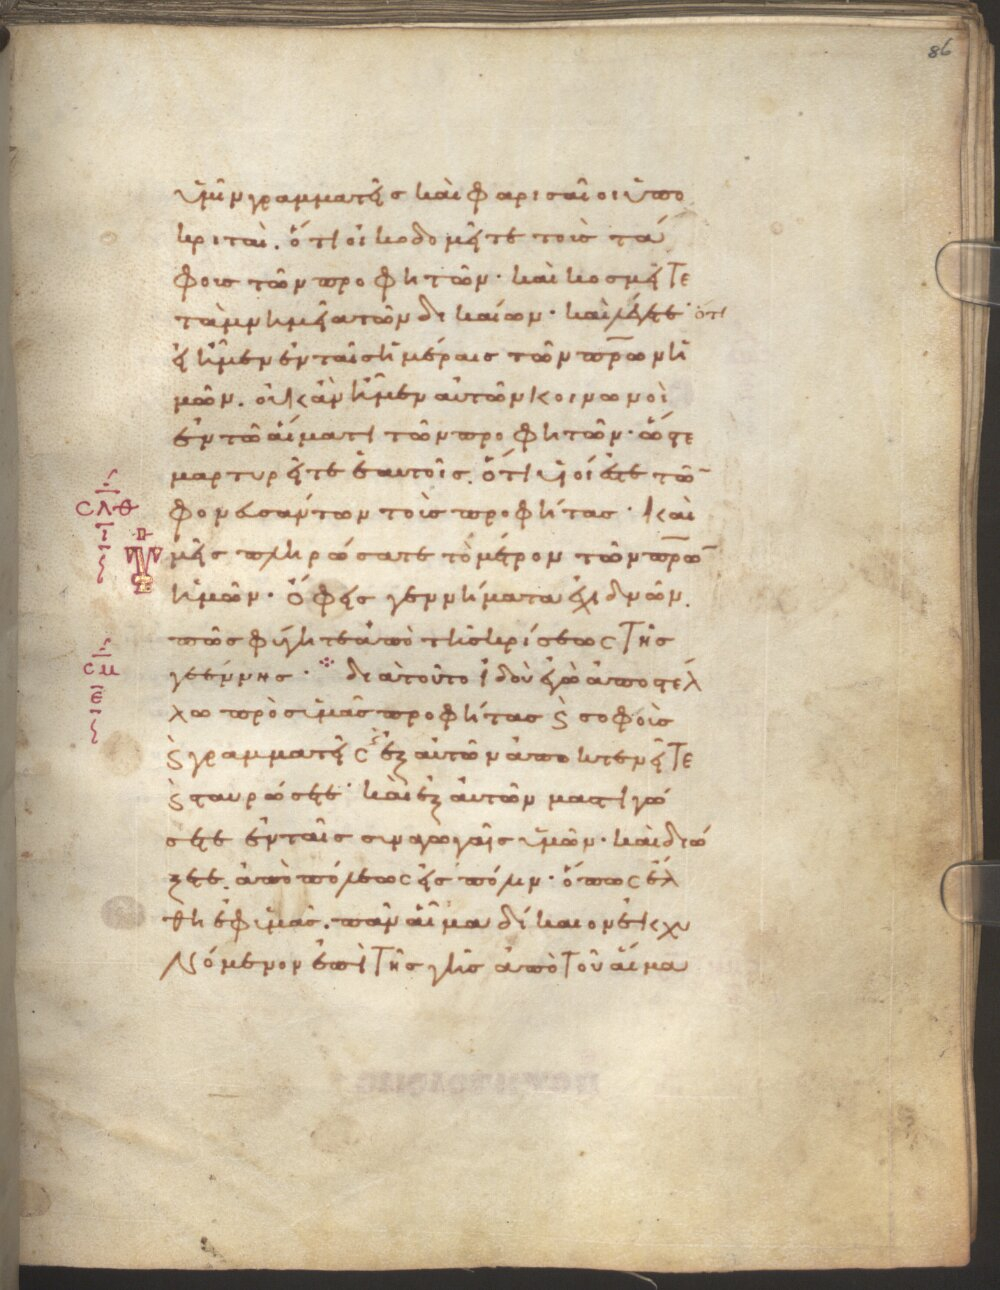 86
ὑμῖν γραμματεῖς καὶ φαρισαῖοι ὑπο
κριταὶ. ὅτι οἰκοδομεῖτε τοὺς τά
φους τῶν προφητῶν· καὶ κοσμεῖτε
τὰ μνημεῖα τῶν δικαίων· καὶ λέγετε· ὅτι
εἰ ἦμεν ἐν ταῖς ἡμέραις τῶν πρων ἡ
μῶν. οὐκ ἂν ἦμεν αὐτῶν κοινωνοὶ
ἐν τῶ αἵματι τῶν προφητῶν· ὥστε
μαρτυρεῖτε ἑαυτοῖς. ὅτι υἱοί ἐστε τῶ
φονευσάντων τοὺς προφήτας· καὶ
ϲλθ
ι
π
ὑμεῖς πληρώσατε τὸ μέτρον τῶν πρω
ἡμῶν· ὄφεις γεννήματα ἐχιδνῶν.
πῶς φύγητε ἀπὸ τῆς κρίσεως τῆς
ϲμ
ε
γεέννης· διατοῦτο ἰδοὺ ἐγὼ ἀποστέλ
λω πρὸς ὑμᾶς προφήτας ϗ σοφοὺς
ϗ γραμματεῖς ϗ ἐξ αὐτῶν ἀποκτενεῖτε
ϗ σταυρώσετε· καὶ ἐξ αὐτῶν μαστιγώ
σετε ἐν ταῖς συναγωγαῖς ὑμῶν· καὶ διώ
ξετε. ἀπὸ πόλεως εἰς πόλιν· ὅπως ἔλ
θη ἐφ ὑμᾶς. πᾶν αἷμα δίκαιον ἐκχυ
νόμενον ἐπὶ τῆς γῆς ἀπὸ τοῦ αἵμα